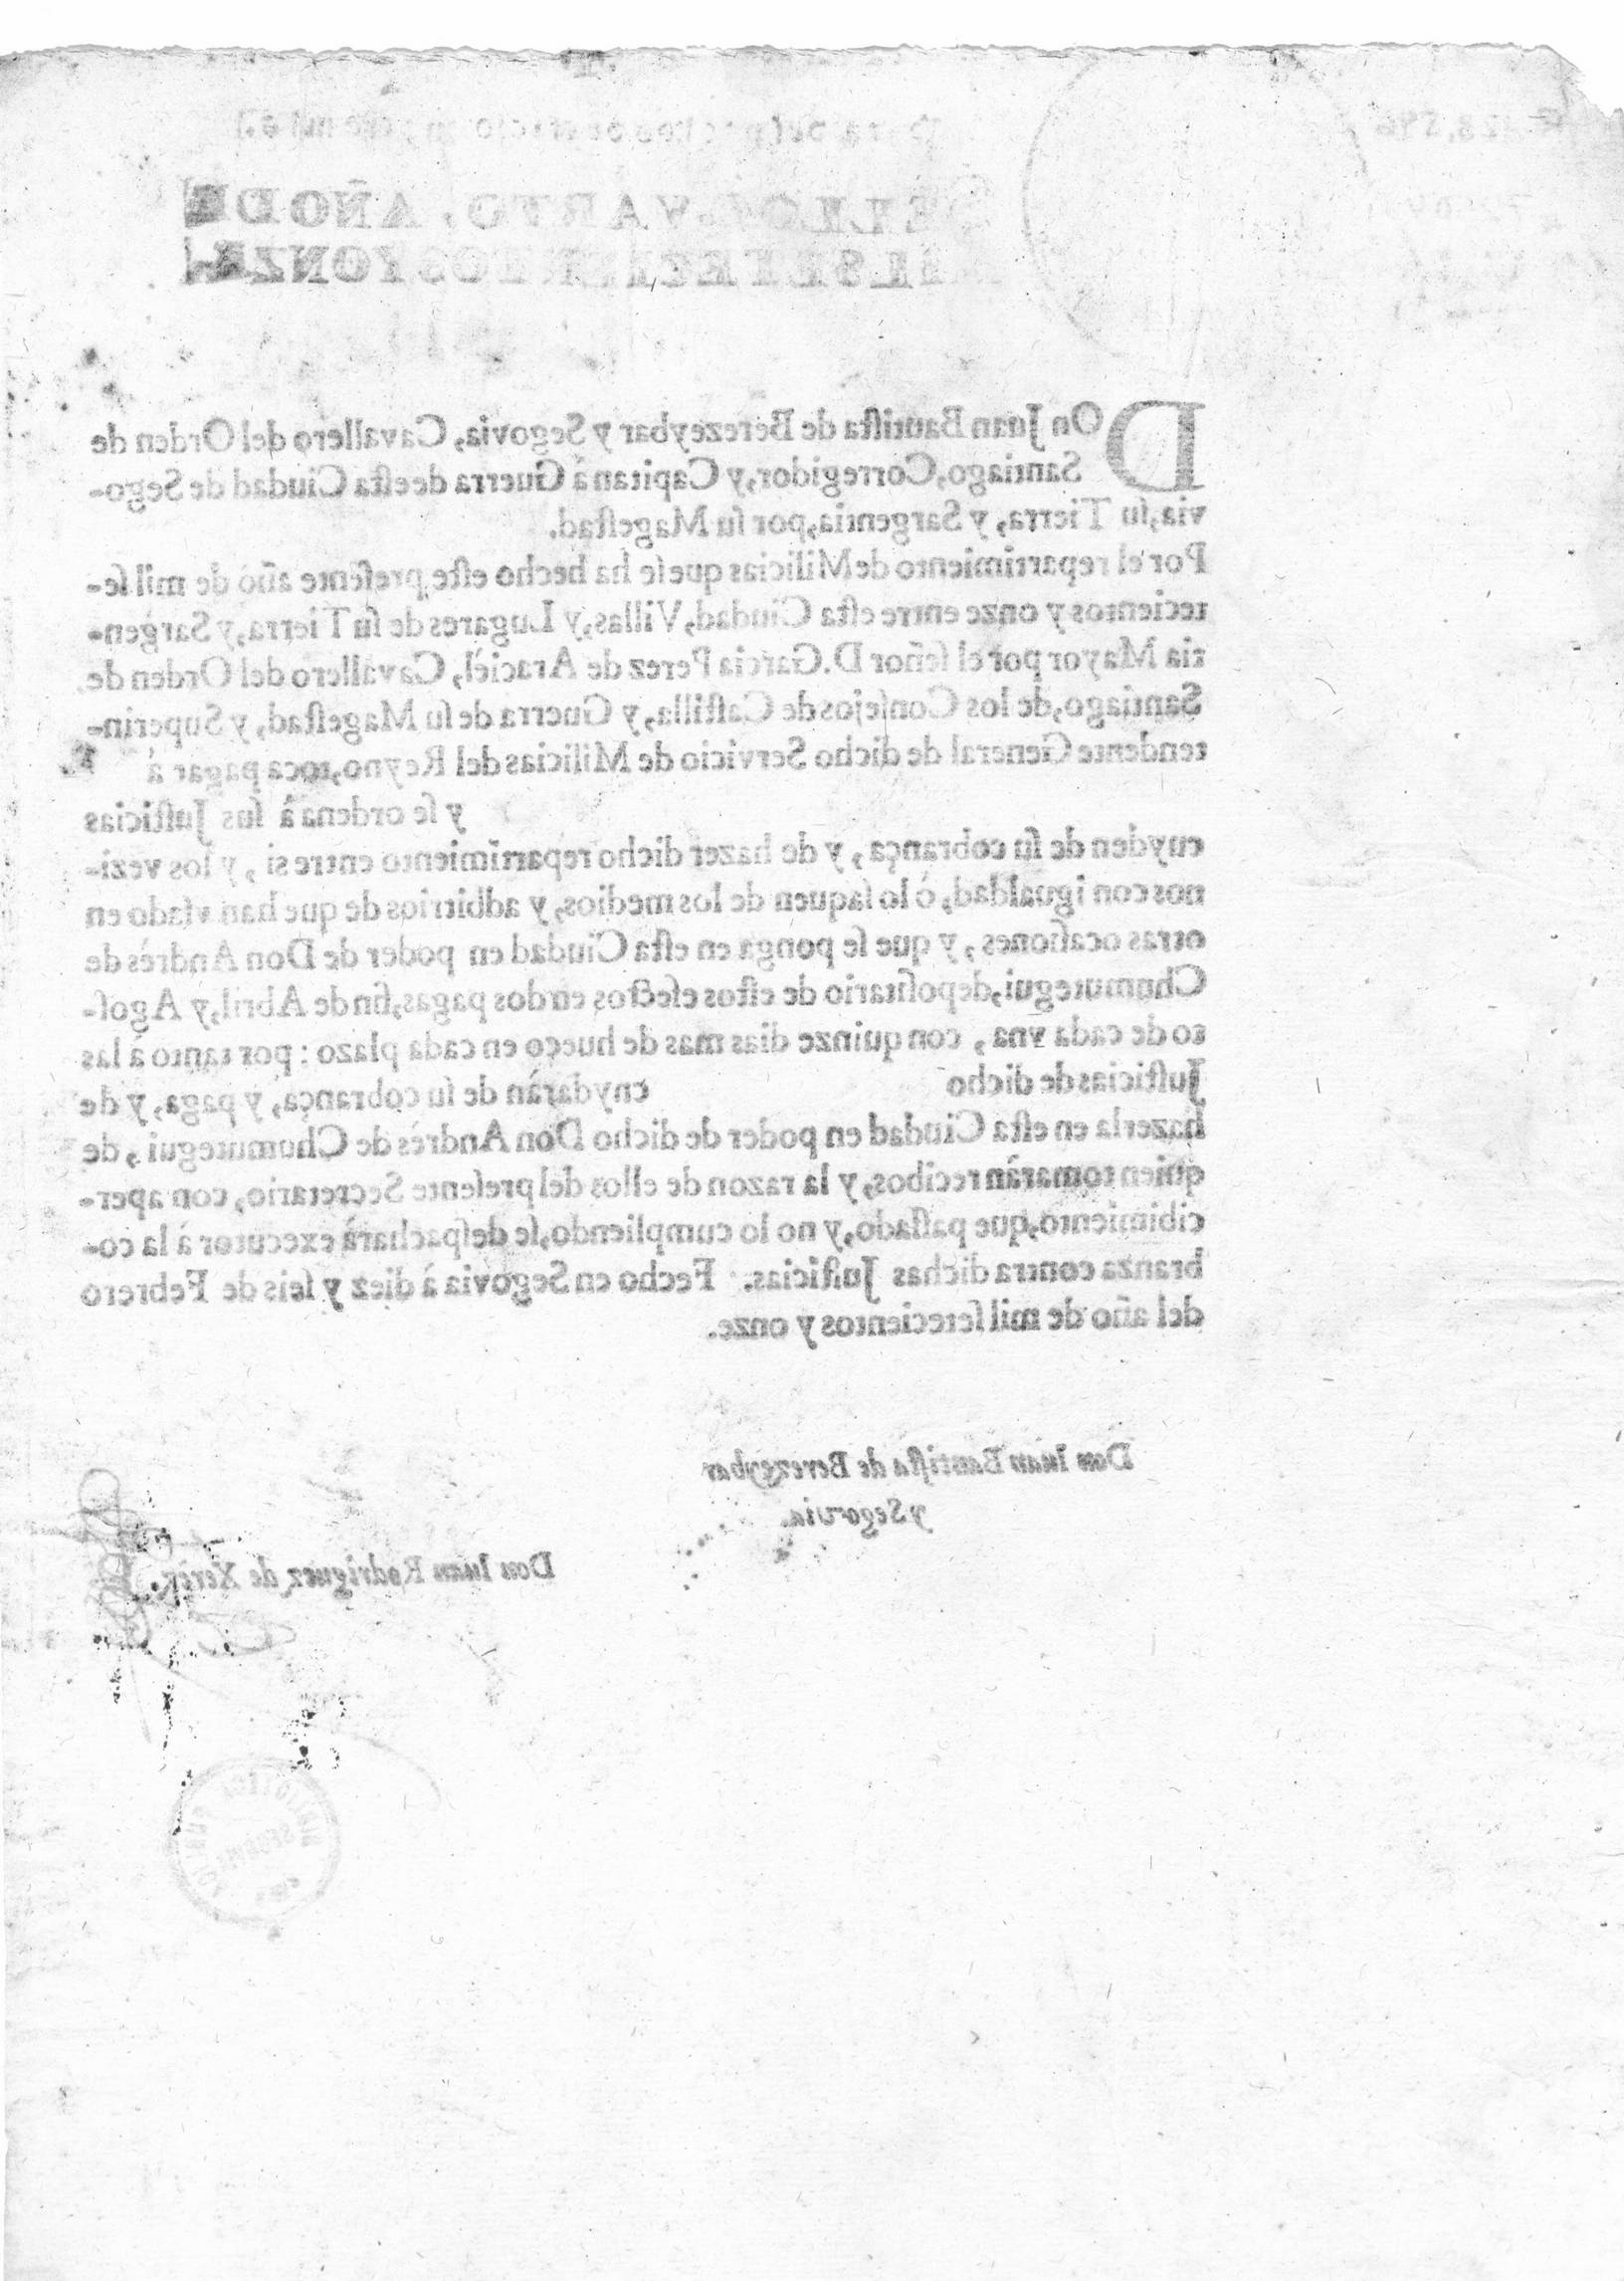 Para despachos de oficio
SELLO QVARTO, AÑO DE
MIL SETECIENTOS Y ONZE
DOn Juan Bautiſta de Berezeybar y Segovia, Cavallero del Orden de
Santiago, Corregidor, y Capitan à Guerra de eſta Ciudad de Sego-
via, ſu Tierra, y Sargentia, por ſu Mageſtad.
Por el repartimiento de Milicias que ſe ha hecho eſte preſente año de mil ſe-
tecientos y onze entre eſta Ciudad, Villas, y Lugares de ſu Tierra, y Sargen-
tia Mayor por el ſeñor D. Garcia Perez de Araciel, Cavallero del Orden de
Santiago, de los Conſejos de Caſtilla, y Guerra de ſu Mageſtad, y Superin-
tendente General de dicho Servicio de Milicias del Reyno, toca pagar à
y ſe ordena à ſus Juſticias
cuyden de ſu cobrança, y de hazer dicho repartimiento entre si, y los vezi-
nos con igualdad, ò lo ſaquen de los medios, y adbitrios de que han vſado en
otras ocaſiones, y que ſe ponga en eſta Ciudad en poder de Don Andrès de
Chumutegui, depoſitario de eſtos efectos en dos pagas, fin de Abril, y Agoſ-
to de cada vna, con quinze dias mas de hueço en cada plazo: por tanto à las
Juſticias de dicho cuydaràn de ſu cobrança, y paga, y de
hazerla en eſta Ciudad en poder de dicho Don Andrès de Chumutegui, de
quien tomaràn recibos, y la razon de ellos del preſente Secretario, con aper-
cibimiento, que paſſado, y no lo cumpliendo, ſe deſpacharà executor à la co-
branza contra dichas Juſticias. Fecho en Segovia à diez y ſeis de Febrero
del año de mil ſetecientos y onze.
Don Iuan Bautiſta de Berezeybar
y Segovia.
Don Iuan Rodriguez de Xerez.